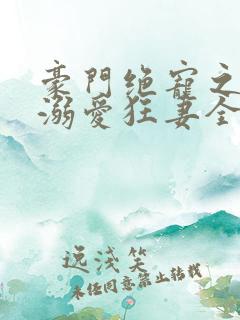 豪門絕寵之
溺愛狂妻全
逸淺笑
未经同意禁止转载